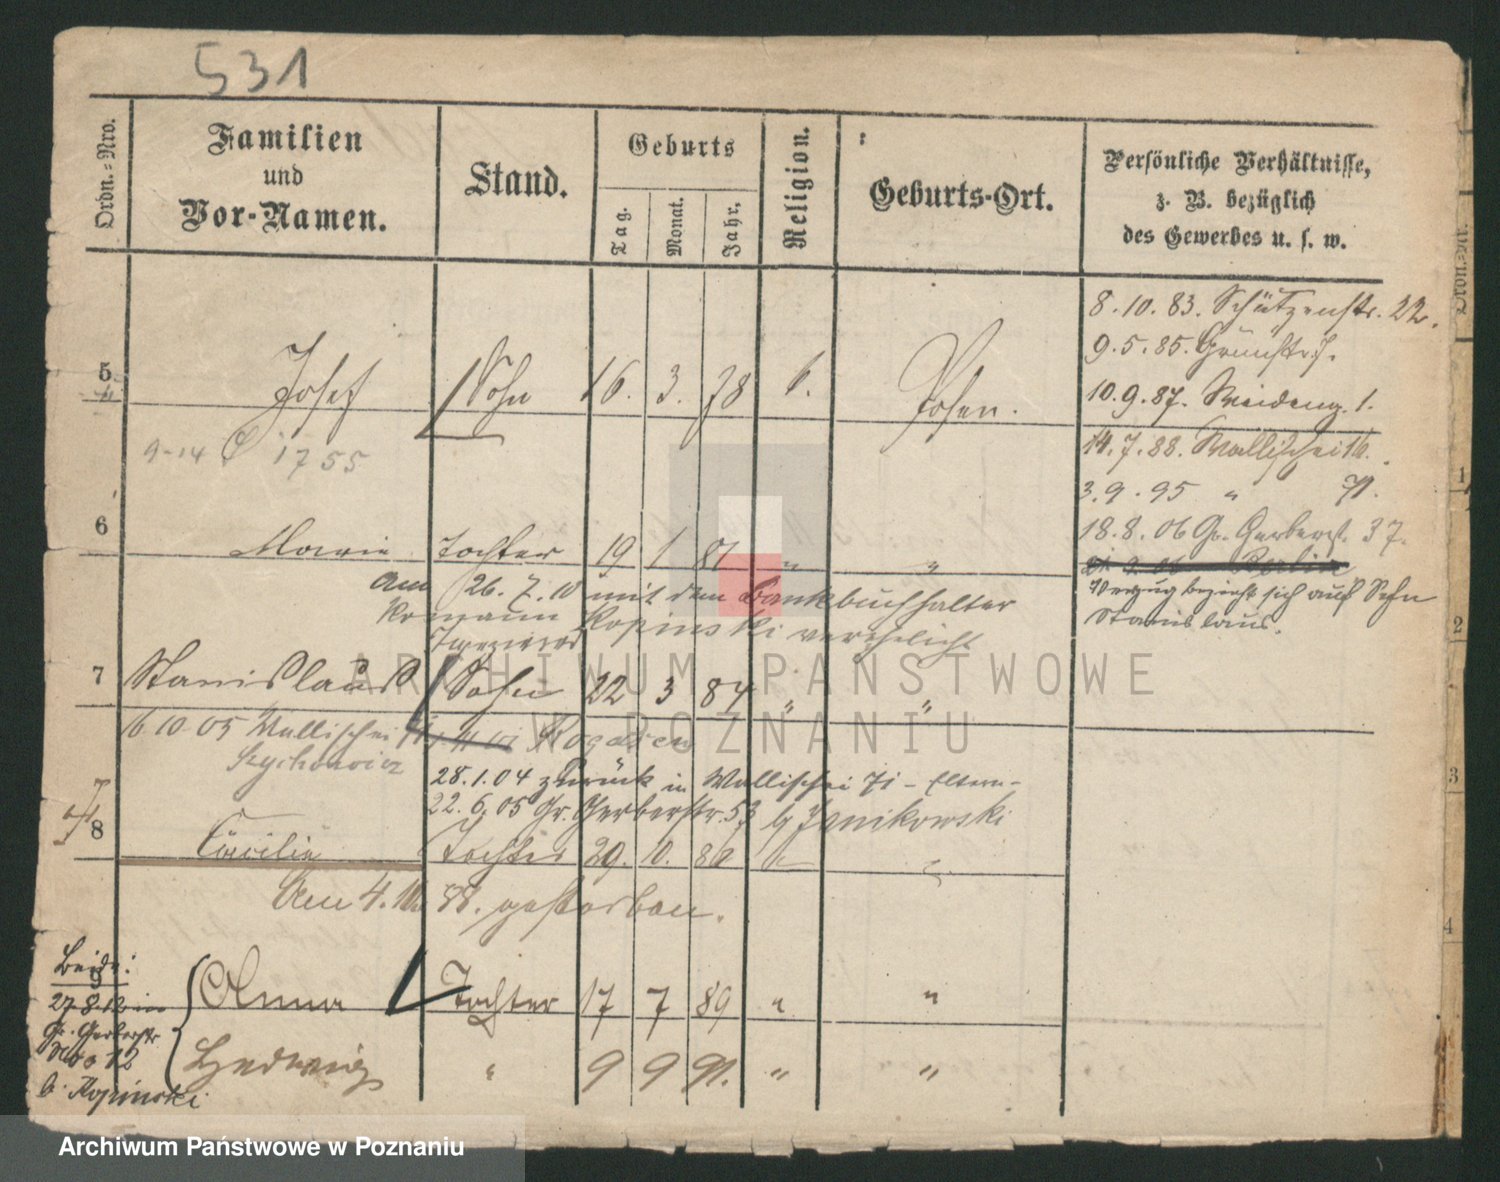 531
Ordn.-Nro.
Familien
und
Vor-Namen.
Stand.
Geburts
Tag.
Monat.
Jahr.
Religion.
Geburts-Ort.
Persönliche Verhältnisse,
z. B. bezüglich
des Gewerbes u. s. w.
8.10.83. Schützenstr. 22.
9.5.85. Grünstr. 7.
5 Josef Sohn 16. 3. 78 k. Posen.
10.9.87. Weideng. 1.
9-14 1755
14.7.88. Wallischei 16.
3.9.95 " 71.
18.8.06 Gr. Gerberst. 37.
6 Marie Tochter 19 1 81 " "
Berlin
Verzug bezieht sich auf Sohn
Stanislaus.
am 26.7.10 mit dem Bankbuchhalter
Romaun Kopinski verehelicht
7 Stanislaus Sohn 22 3 84 " "
16.10.05 Wallischei
Rogasen
28.1.04 zurück in Wallischei 71 - Eltern -
22.6.05 Gr. Gerberstr. 53 b/ Janikowski
8 Cäcilie Tochter 29. 10. 86 " "
Am 4. 88. gestorben.
Beide:
9
27.8.12 in
Gr. Gerberstr
No 12
b. Kopinski
Anna Tochter 17 7 89 " "
Hedwig " 9 9 91. " "
Ordn.-Nr.
1
2
3
4
ARCHIWUM PAŃSTWOWE
W POZNANIU
Archiwum Państwowe w Poznaniu